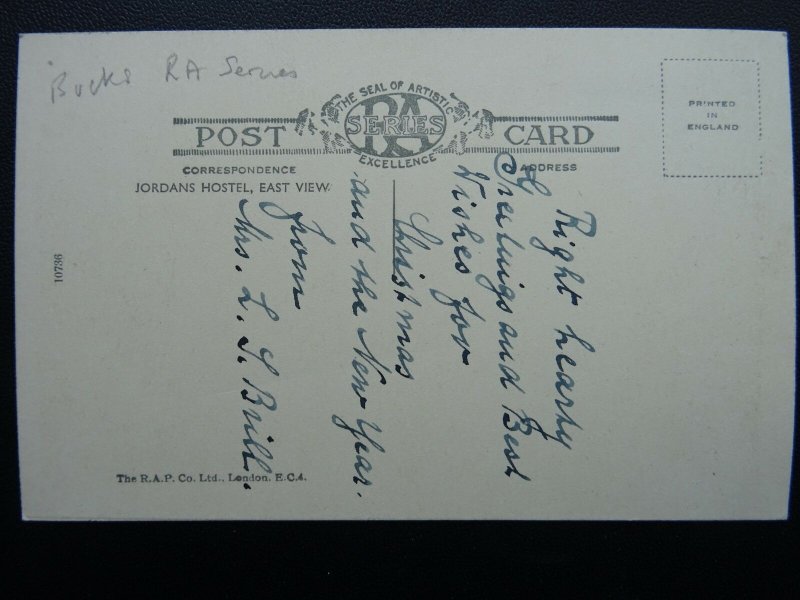 Bucks RA Series
THE SEAL OF ARTISTIC
RA
SERIES
EXCELLENCE
POST CARD
CORRESPONDENCE
ADDRESS
JORDANS HOSTEL, EAST VIEW
PRINTED
IN
ENGLAND
10736
Right hearty
Greetings and Best
Wishes for
Christmas
and the New Year.
from
Mrs. L. S. Brill.
The R.A.P. Co. Ltd., London, E.C.4.